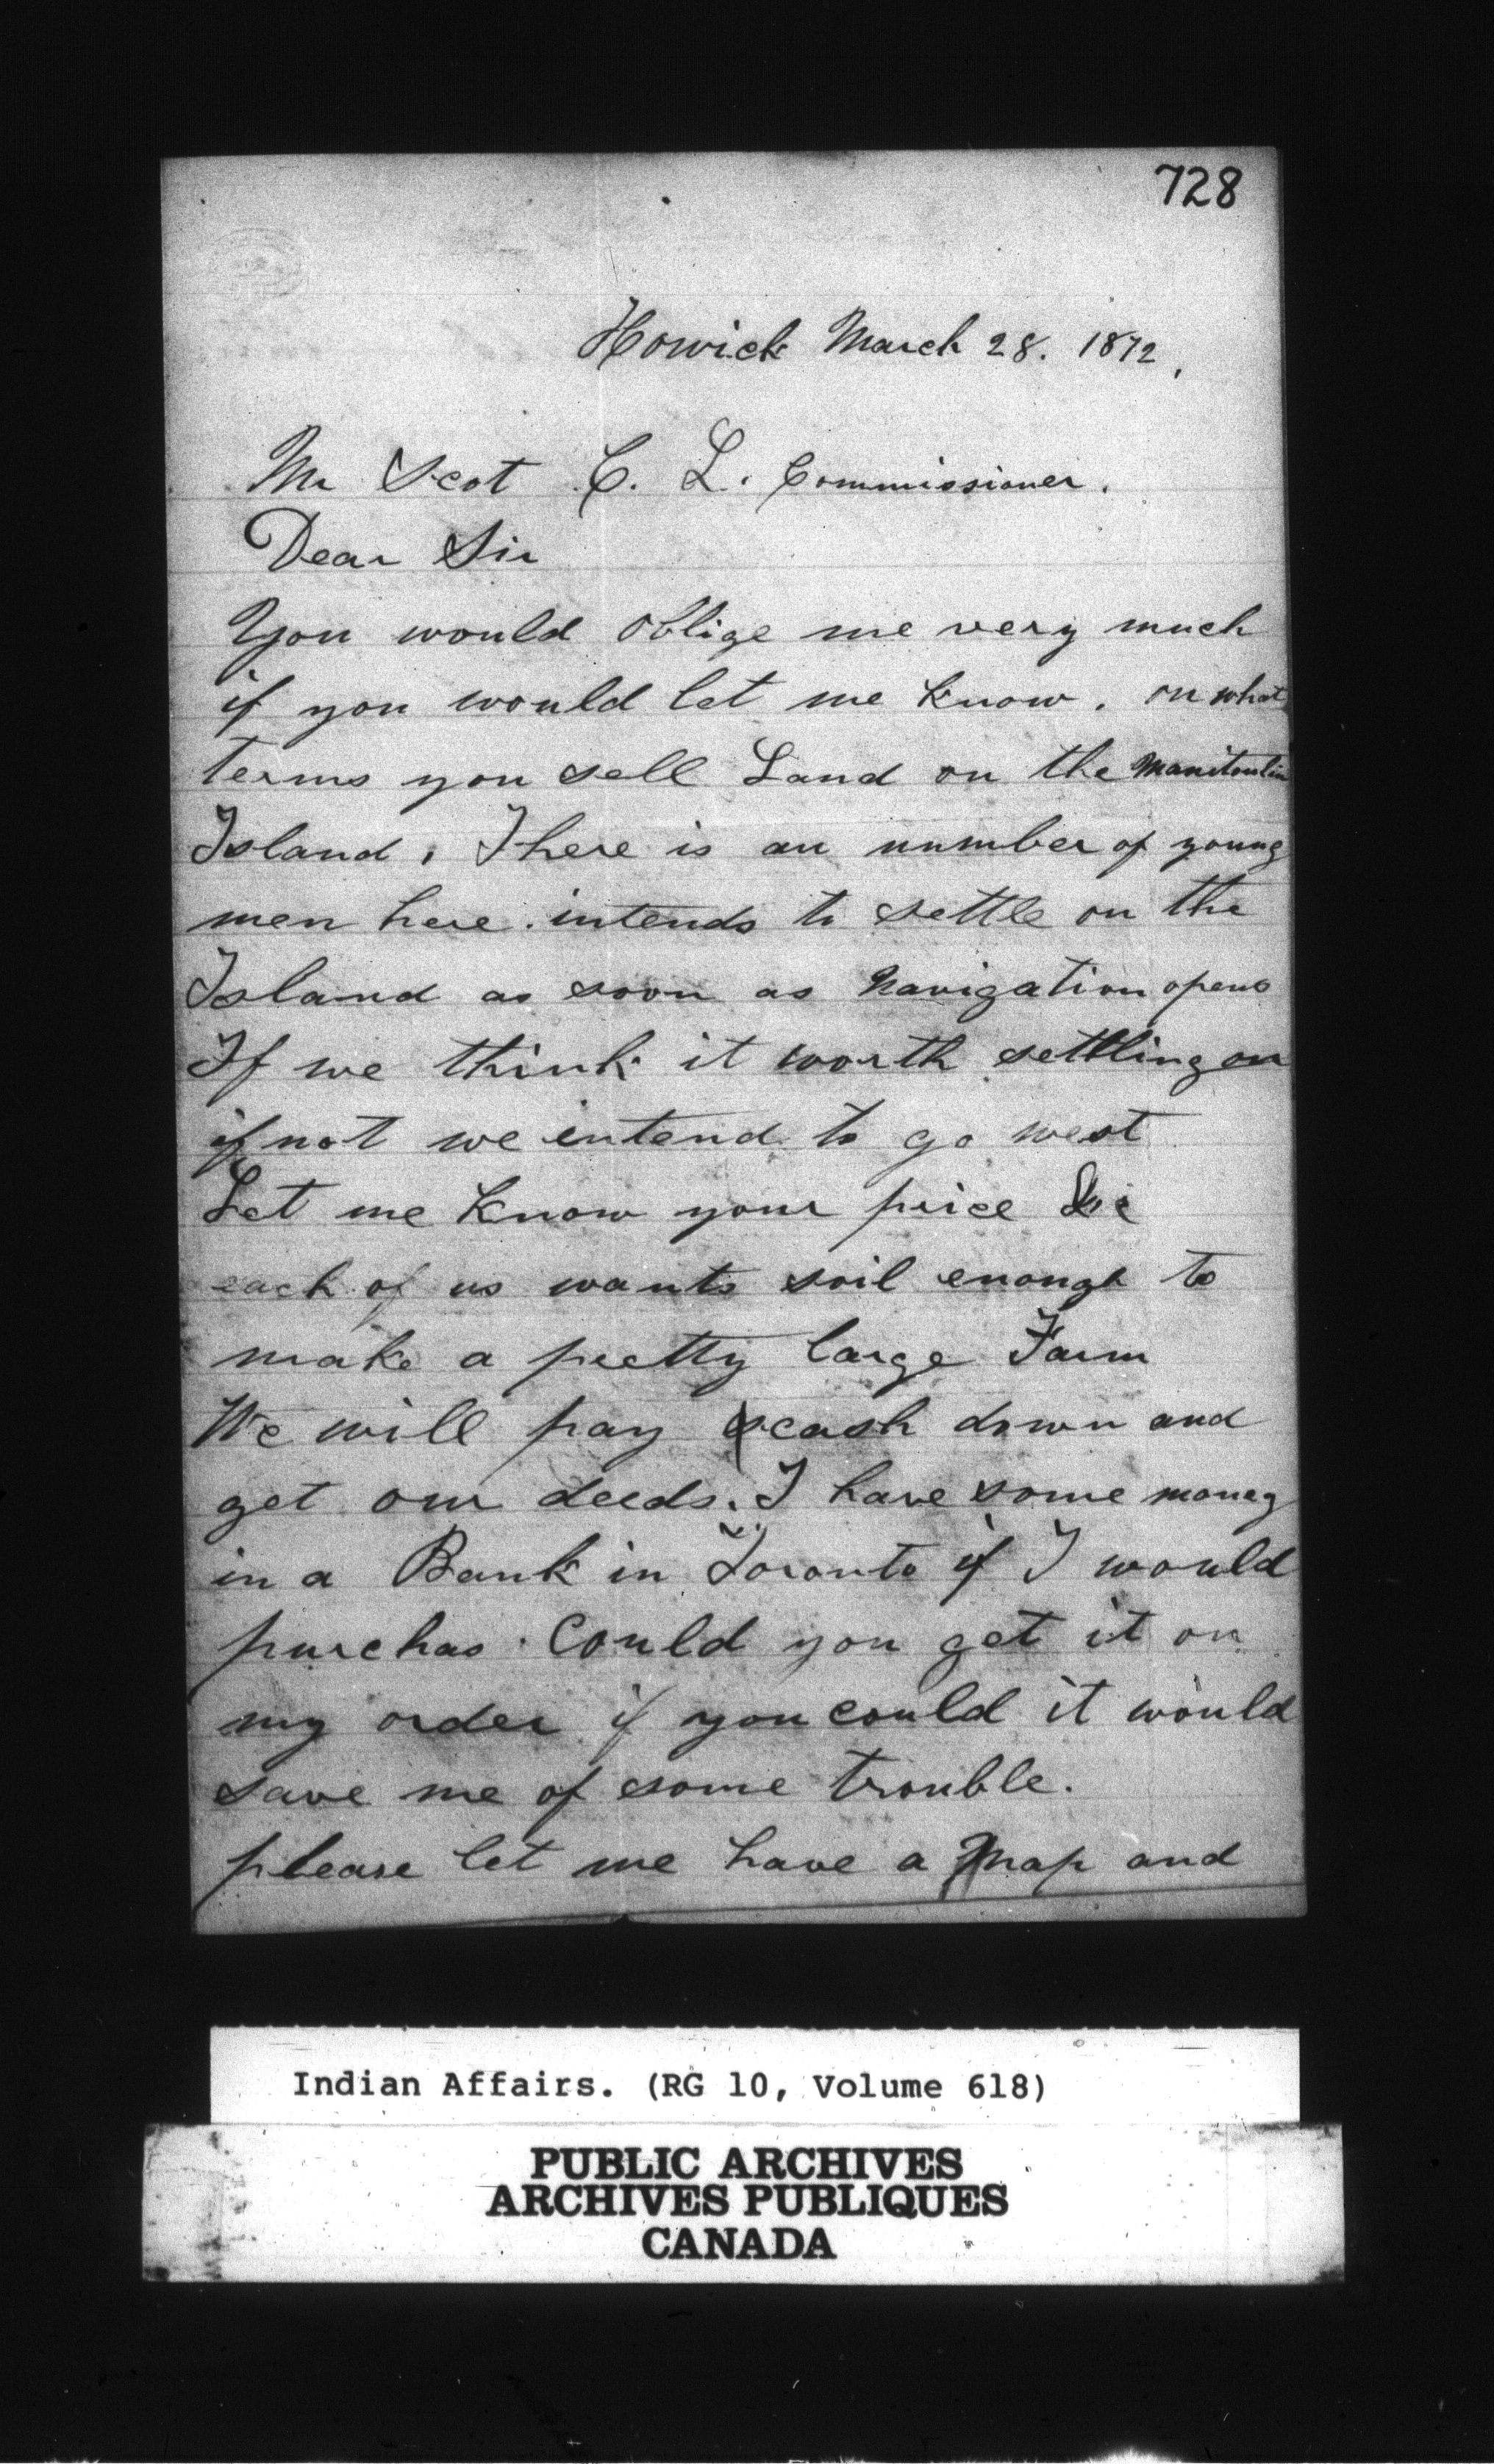 728
Howick March 28. 1872,
Mr Scot C. L. Commissioner.
Dear Sir
You would oblige me very much
if you would let me know. on what
terms you sell Land on the Manitoulin
Island. There is an number of young
men here. intends to settle on the
Island as soon as Navigation opens
If we think it worth settling on
if not we entend to go west
Let me know your price
each of us wants soil enough to
make a pretty large Farm
We will pay cash down and
get our deeds. I have some money
in a Bank in Toronto if I would
purchas. Could you get it on
my order if you could it would
save me of some trouble.
please let me have a Map and
Indian Affairs. (RG 10, Volume 618)
PUBLIC ARCHIVES
ARCHIVES PUBLIQUES
CANADA